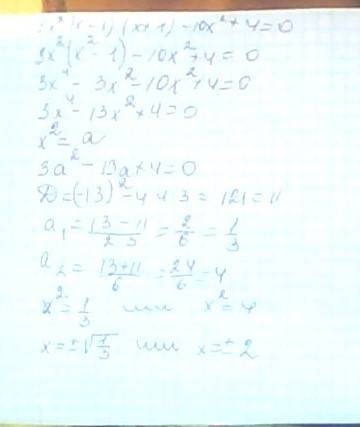 3x²(x-1)(x+1)-10x²+4=0
3x²(x²-1)-10x²+4=0
3x⁴-3x²-10x²+4=0
3x⁴-13x²+4=0
x²=a
3a²-13a+4=0
D=(-13)²-4·4·3=121=11
a₁=(13-11)/(2·3)=2/6=1/3
a₂=(13+11)/6=24/6=4
x²=1/3 или x²=4
x=±√(1/3) или x=±2